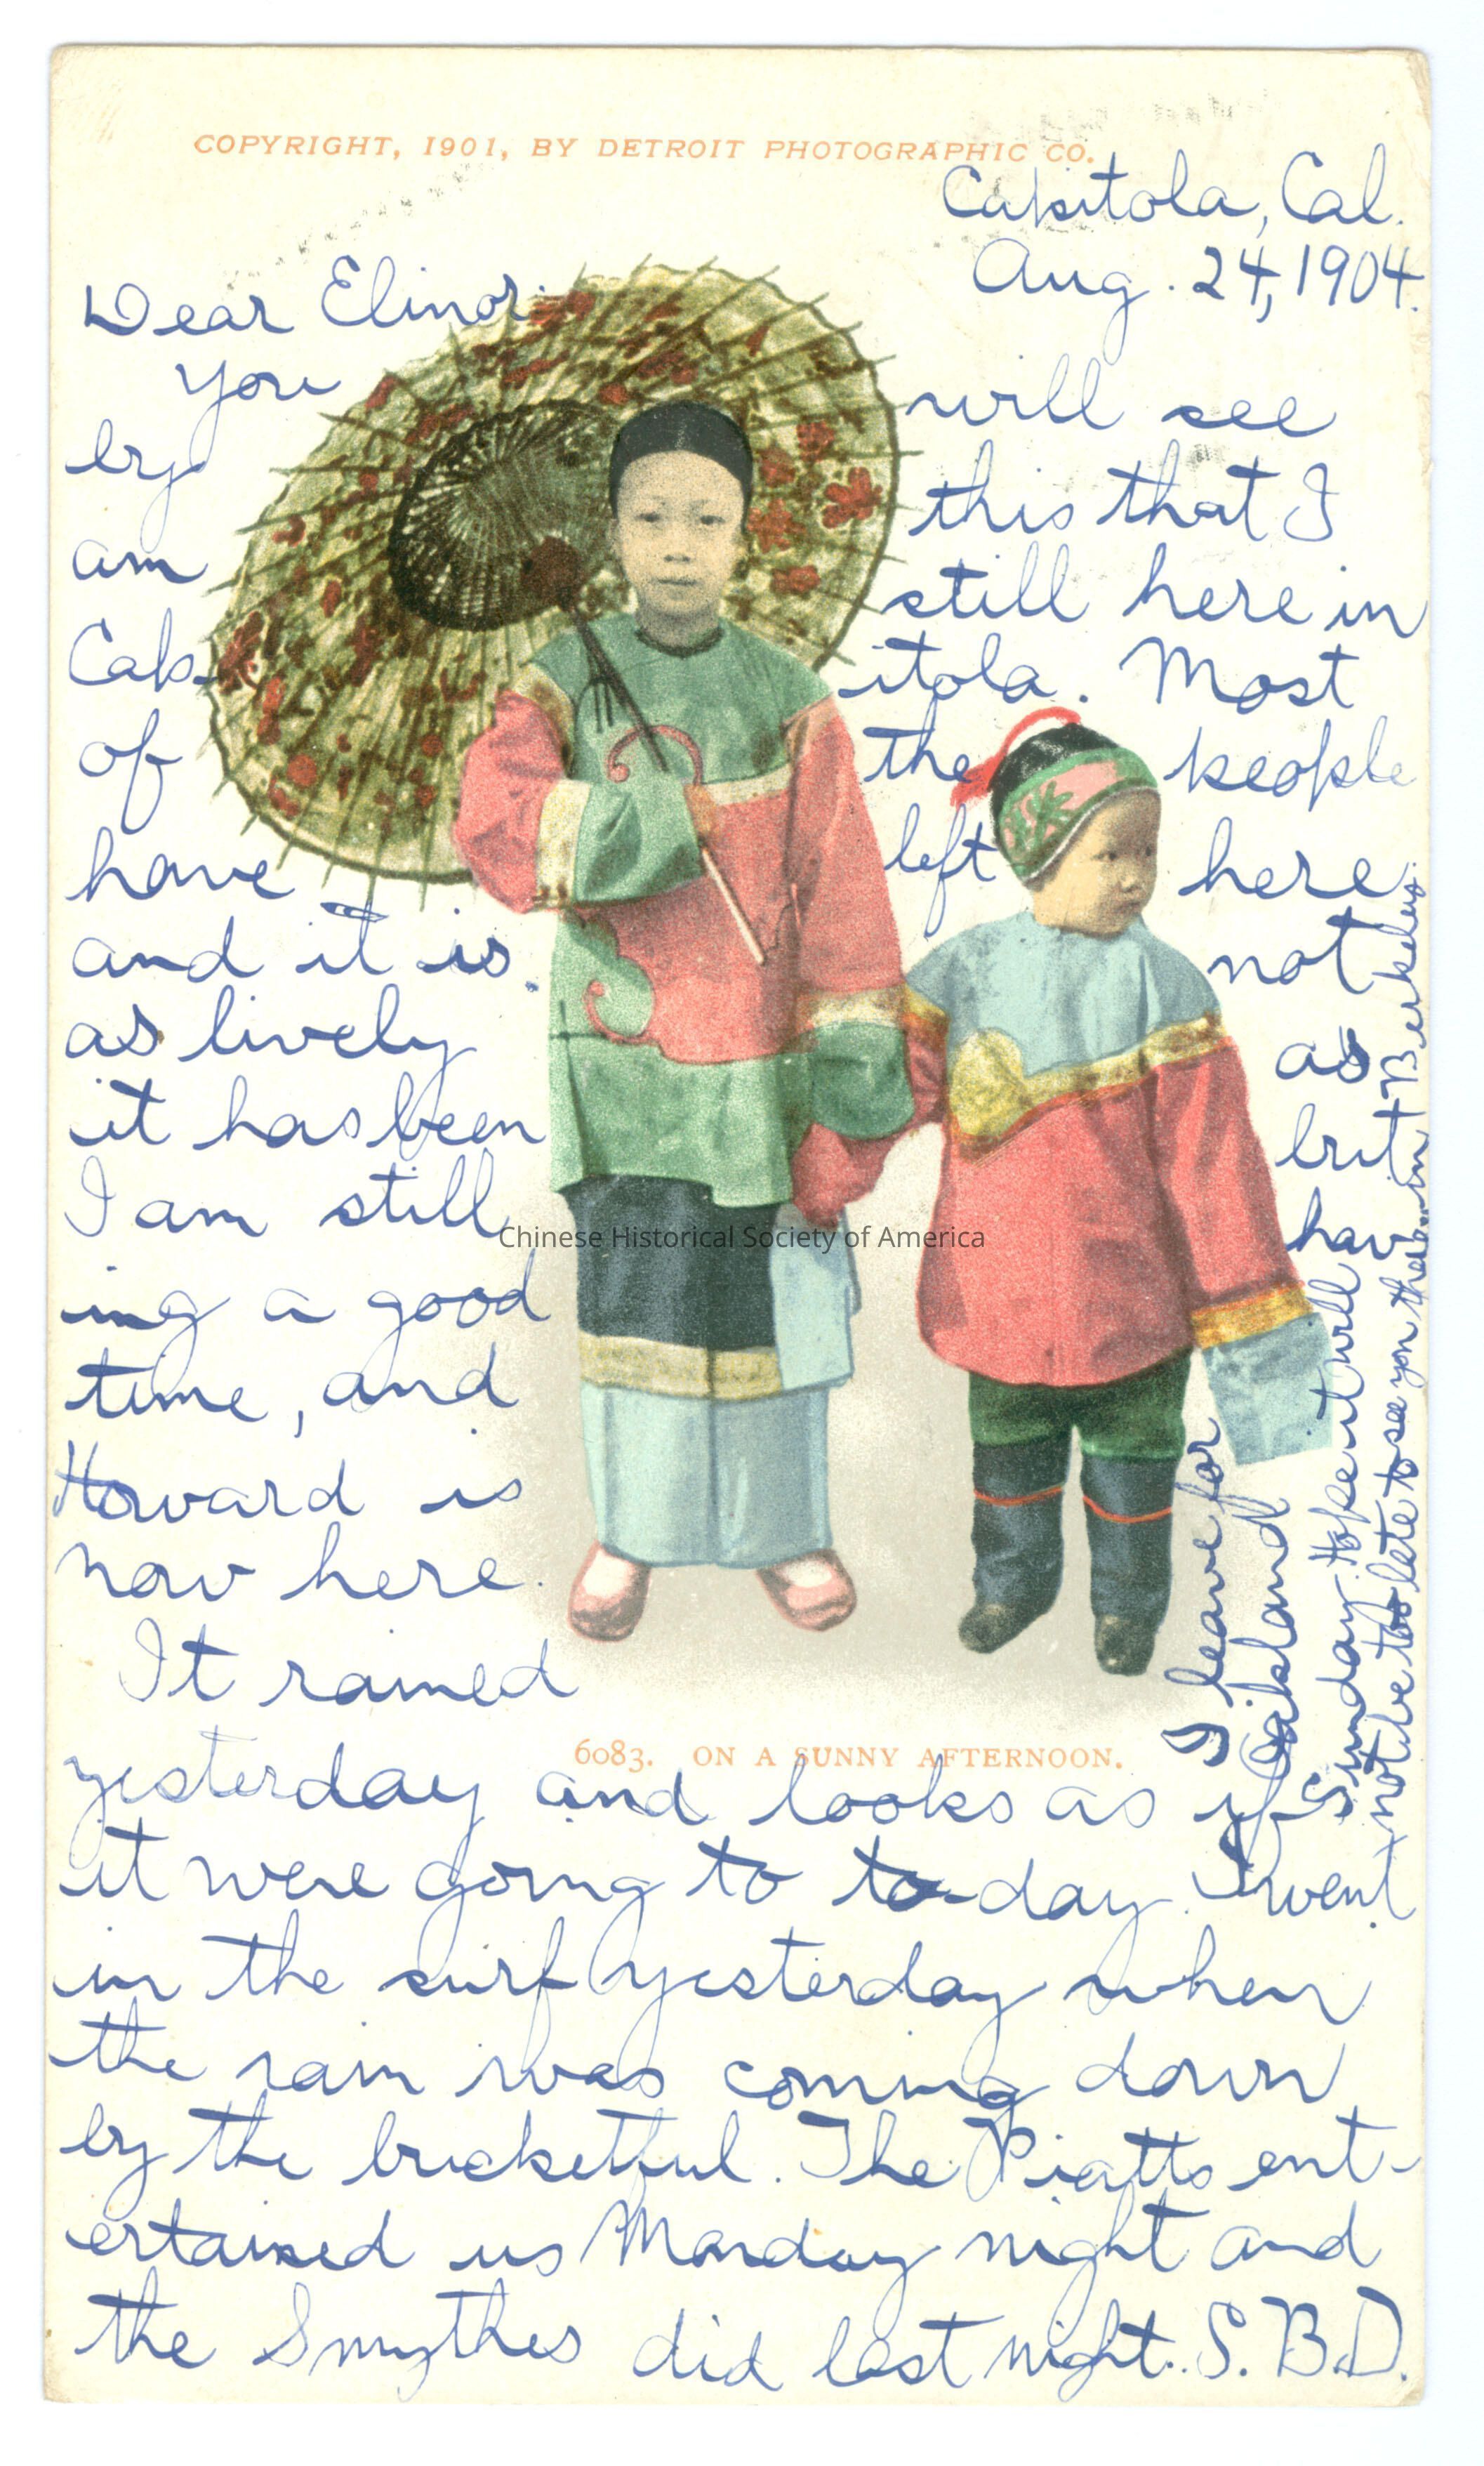 COPYRIGHT, 1901, BY DETROIT PHOTOGRAPHIC CO.
Capitola, Cal.
Aug. 24, 1904.
Dear Elinor:
You will see
by this that I
am still here in
Cap- itola. Most
of the people
have left here
and it is not
as lively as
it has been but
I am still hav
ing a good
time, and
Howard is
now here.
It rained
yesterday and looks as if
it were going to to-day. I went
in the surf yesterday when
the rain was coming down
by the bucketful. The Piatts ent-
ertained us Monday night and
the Smythes did last night. S.B.D.
I leave for
Oakland
Sunday. Hope it will
not be too late to see you
in Berkeley.
6083. ON A SUNNY AFTERNOON.
Chinese Historical Society of America